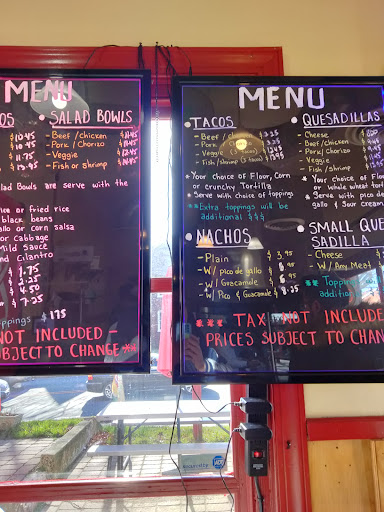 MENU
OS
$10.45
$10.45
$11.75
$13.95
SALAD BOWLS
- Beef/chicken
- Pork/Chorizo
- Veggie
- Fish or shrimp
alad Bowls are serve with the
ice or fried rice
black beans
allo or corn salsa
or Cabbage
Mild Sauce
nd Cilantro
$1.75
$4.50
$7.25
ppings $1.75
NOT INCLUDED -
UBJECT TO CHANGE **
MENU
TACOS
- Beef/chicken
- Pork
- Veggie (3 tacos)
- Fish/shrimp (3 tacos)
Your choice of Flour, Corn
or crunchy Tortilla
* Serve with choice of toppings
** Extra toppings will be
additional $$$
NACHOS
- Plain
- W/ pico de gallo
- W/ Guacamole
- W/ Pico & Guacamole $8.25
QUESADILLAS
- Cheese
- Beef/chicken
- Pork/Chorizo
- Veggie
- Fish/shrimp
* Your Choice of Flour
or whole wheat tort
* Serve with pico de
gallo & Sour Cream
SMALL QUE
SADILLA
- Cheese
- W/ Any Meat
** Toppin
addition
*** TAX NOT INCLUDE
PRICES SUBJECT TO CHAN